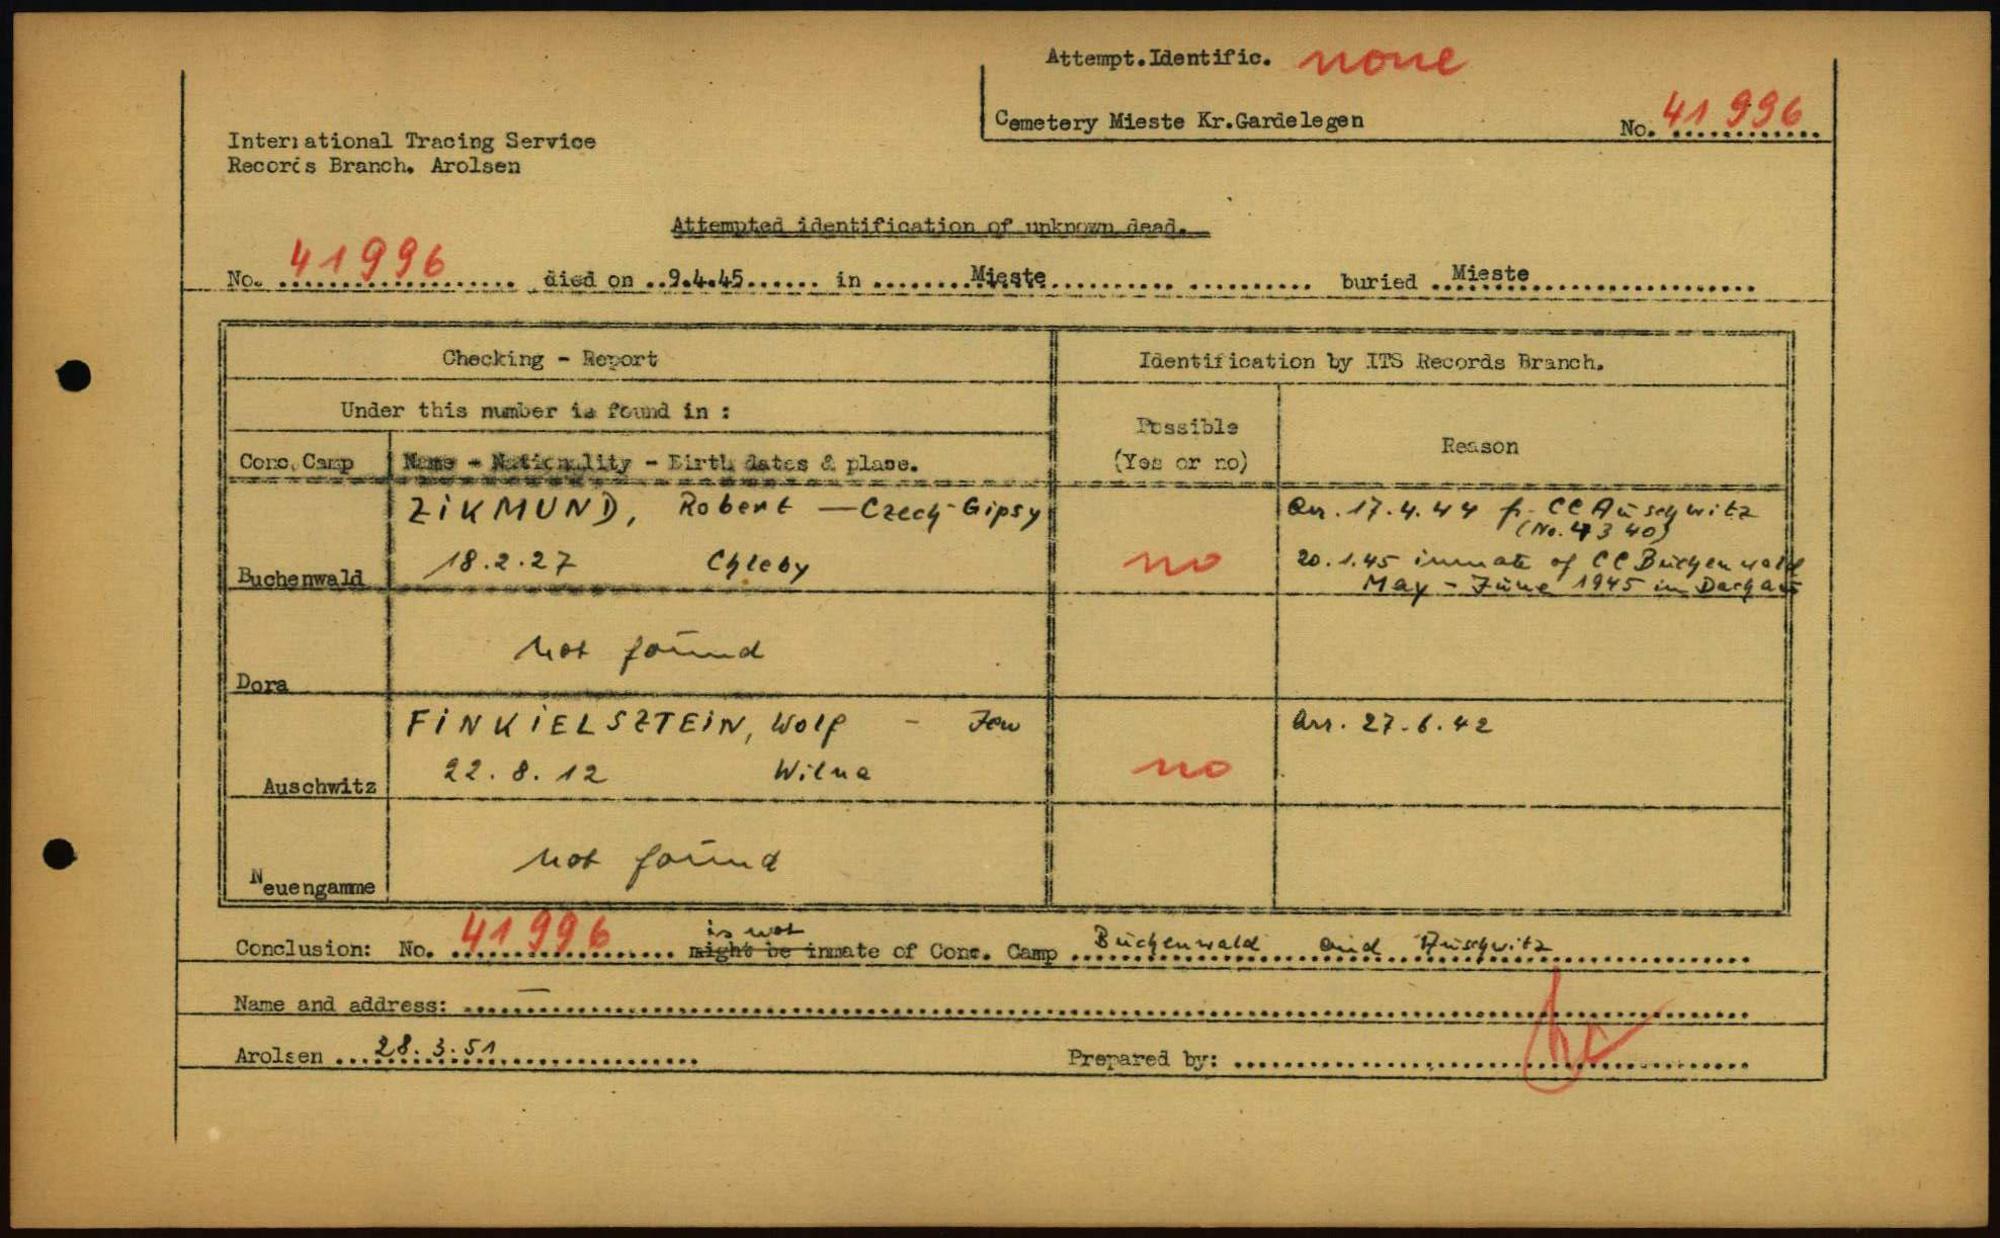 Attempt.Identific. none
Cemetery Mieste Kr.Gardelegen No. 41996
International Tracing Service
Records Branch. Arolsen
Attempted identification of unknown dead.
No. 41996 died on ..9.4.45...... in ........Mieste.......... buried ..Mieste....
Checking - Report
Identification by ITS Records Branch.
Under this number is found in :
Possible
(Yes or no)
Reason
Conc. Camp
Name - Nationality - Birth dates & place.
ZIKMUND, Robert — Czech-Gipsy
18.2.27 Chleby
Buchenwald
no
arr. 17.4.44 fr. CC Auschwitz
20.1.45 inmate of CC Buchenwald
May - June 1945 in Dachau
not found
Dora
FINKIELSZTEIN, Wolf - Jew
22.8.12 Wilna
Auschwitz
no
arr. 27.6.42
not found
Neuengamme
is not
Conclusion: No. 41996 might be inmate of Conc. Camp Buchenwald and Auschwitz
Name and address: —
Arolsen 28.3.51 Prepared by: